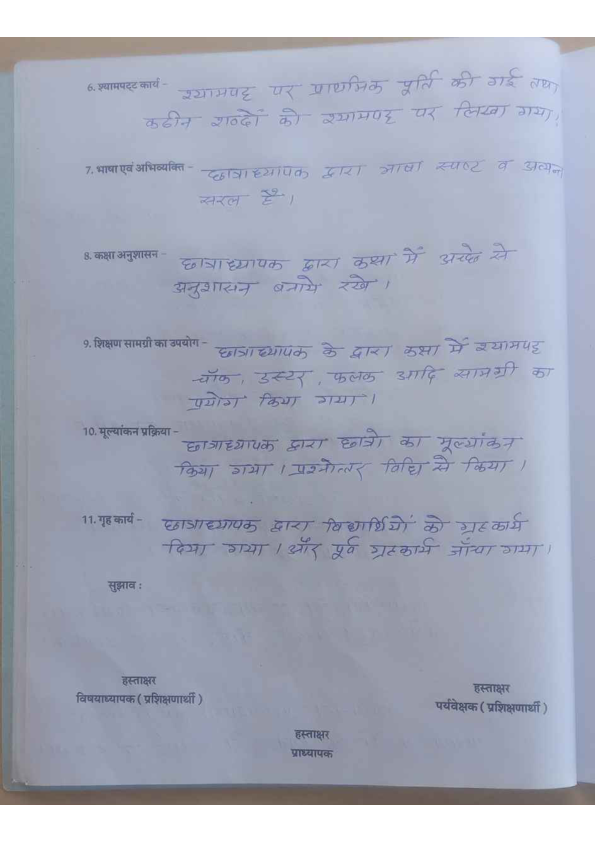 6. श्यामपट्ट कार्य - श्यामपट्ट पर प्राथमिक पूर्ति की गई तथा
कठीन शब्दों को श्यामपट्ट पर लिखा गया।
7. भाषा एवं अभिव्यक्ति - छात्राध्यापक द्वारा भाषा स्पष्ट व अत्यन्त
सरल है।
8. कक्षा अनुशासन - छात्राध्यापक द्वारा कक्षा में अच्छे से
अनुशासन बनाये रखे।
9. शिक्षण सामग्री का उपयोग - छात्राध्यापक के द्वारा कक्षा में श्यामपट्ट
चॉक, डस्टर, फलक आदि सामग्री का
प्रयोग किया गया।
10. मूल्यांकन प्रक्रिया - छात्राध्यापक द्वारा छात्रो का मूल्यांकन
किया गया। प्रश्नोत्तर विधि से किया।
11. गृह कार्य - छात्राध्यापक द्वारा विद्यार्थियों को ग्रहकार्य
दिया गया। और पूर्व ग्रहकार्य जाँचा गया।
सुझाव :
हस्ताक्षर
विषयाध्यापक ( प्रशिक्षणार्थी )
हस्ताक्षर
पर्यवेक्षक ( प्रशिक्षणार्थी )
हस्ताक्षर
प्राध्यापक